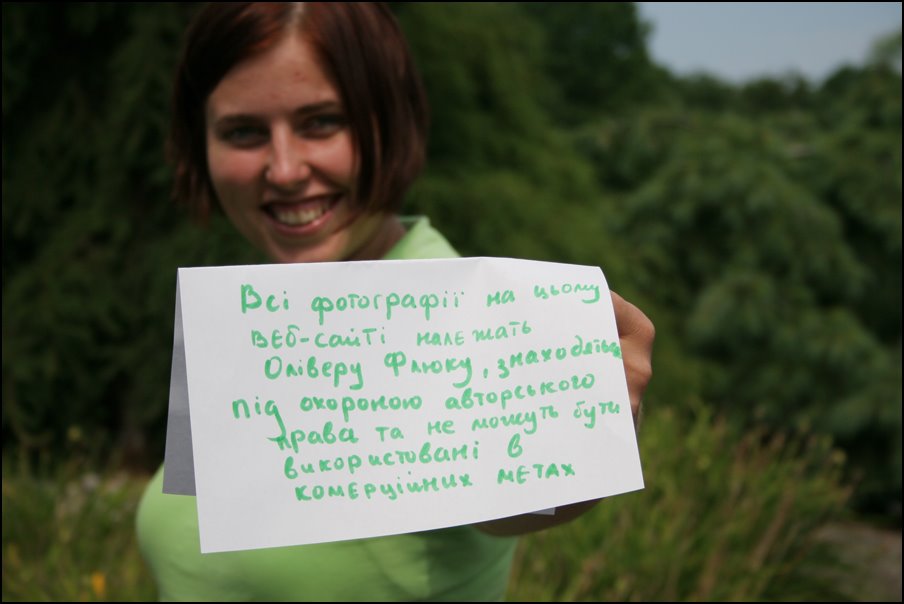 Всі фотографії на цьому
веб-сайті належать
Оліверу Флюку, знаходяться
під охороною авторського
права та не можуть бути
використовані в
комерційних метах